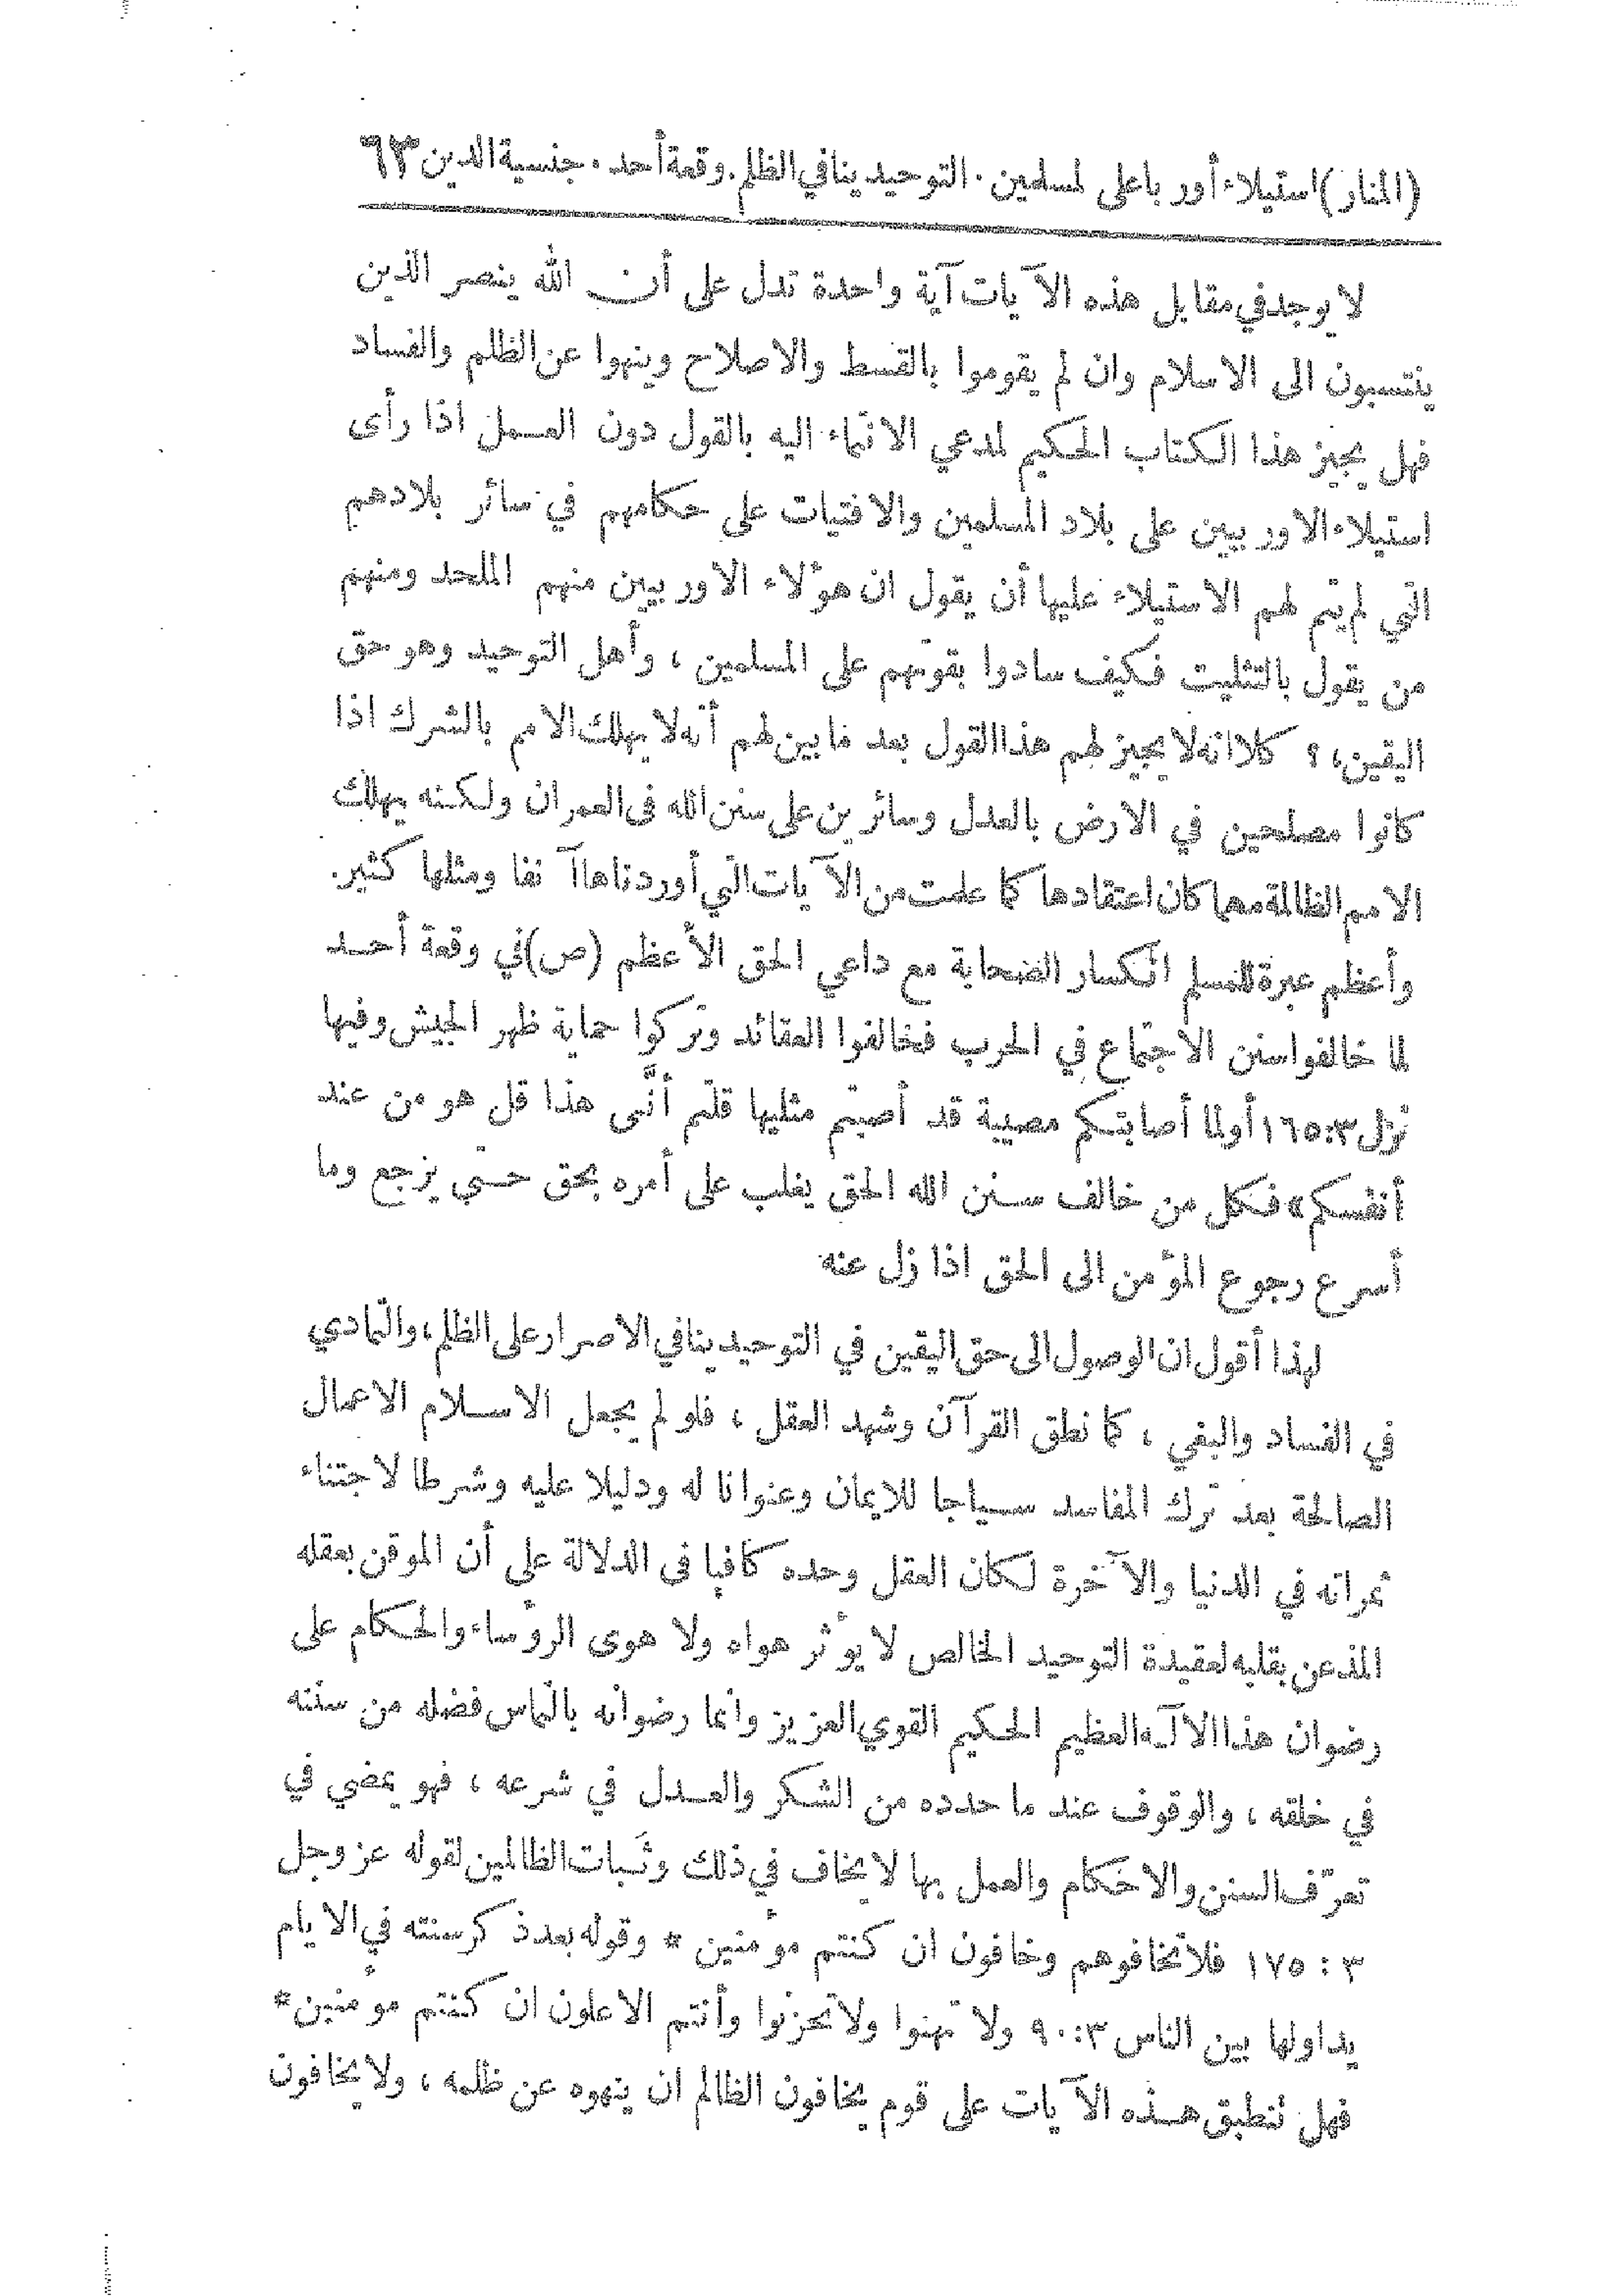 (المنار) استيلاء أوربا على لمسلمين . التوحيد ينافي الظلم . وقعة أحد . جنسية الدين ٦٣
لا يوجد في مقابل هذه الآيات آية واحدة تدل على أن الله ينصر الذين
ينتسبون الى الاسلام وان لم يقوموا بالقسط والاصلاح وينهوا عن الظلم والفساد
فهل يجيز هذا الكتاب الحكيم لمدعي الانتماء اليه بالقول دون العمل اذا رأى
استيلاء الاوربيين على بلاد المسلمين والافتيات على حكامهم في سائر بلادهم
التي لم يتم لهم الاستيلاء عليها أن يقول ان هؤلاء الاوربيين منهم الملحد ومنهم
من يقول بالتثليث فكيف سادوا بقوتهم على المسلمين ، وأهل التوحيد وهو حق
اليقين، ؟ كلا انه لا يجيز لهم هذا القول بعد ما بين لهم أنه لا يهلك الامم بالشرك اذا
كانوا مصلحين في الارض بالعدل وسائرين على سنن الله في العمران ولكنه يهلك
الامم الظالمة مهما كان اعتقادها كما علمت من الآيات التي أوردناها آنفا ومثلها كثير .
وأعظم عبرة للمسلم انكسار الصحابة مع داعي الحق الأعظم (ص) في وقعة أحد
لما خالفوا سنن الاجتماع في الحرب فخالفوا القائد وتركوا حماية ظهر الجيش وفيها
نزل ٣:١٦٥ أولما أصابتكم مصيبة قد أصبتم مثليها قلتم أنَّى هذا قل هو من عند
أنفسكم» فكل من خالف سنن الله الحق يغلب على أمره بحق حتى يرجع وما
أسرع رجوع المؤمن الى الحق اذا زل عنه
لهذا أقول ان الوصول الى حق اليقين في التوحيد ينافي الاصرار على الظلم، والتمادي
في الفساد والبغي ، كما نطق القرآن وشهد العقل ، فلو لم يجعل الاسلام الاعمال
الصالحة بعد ترك المفاسد سياجا للايمان وعنوانا له ودليلا عليه وشرطا لاجتناء
ثمراته في الدنيا والآخرة لكان العقل وحده كافيا في الدلالة على أن الموقن بعقله
المذعن بقلبه لعقيدة التوحيد الخالص لا يؤثر هواه ولا هوى الرؤساء والحكام على
رضوان هذا الاآله العظيم الحكيم القوي العزيز وانما رضوانه بالتماس فضله من سننه
في خلقه ، والوقوف عند ما حدده من الشكر والعدل في شرعه ، فهو يمضي في
تعرّف السنن والاحكام والعمل بها لا يخاف في ذلك وثبات الظالمين لقوله عز وجل
٣ : ١٧٥ فلا تخافوهم وخافون ان كنتم مؤمنين * وقوله بعد ذكر سنته في الايام
يداولها بين الناس ٣:٩٠ ولا تهنوا ولا تحزنوا وأنتم الاعلون ان كنتم مؤمنين *
فهل تنطبق هذه الآيات على قوم يخافون الظالم ان ينهوه عن ظلمه ، ولا يخافون